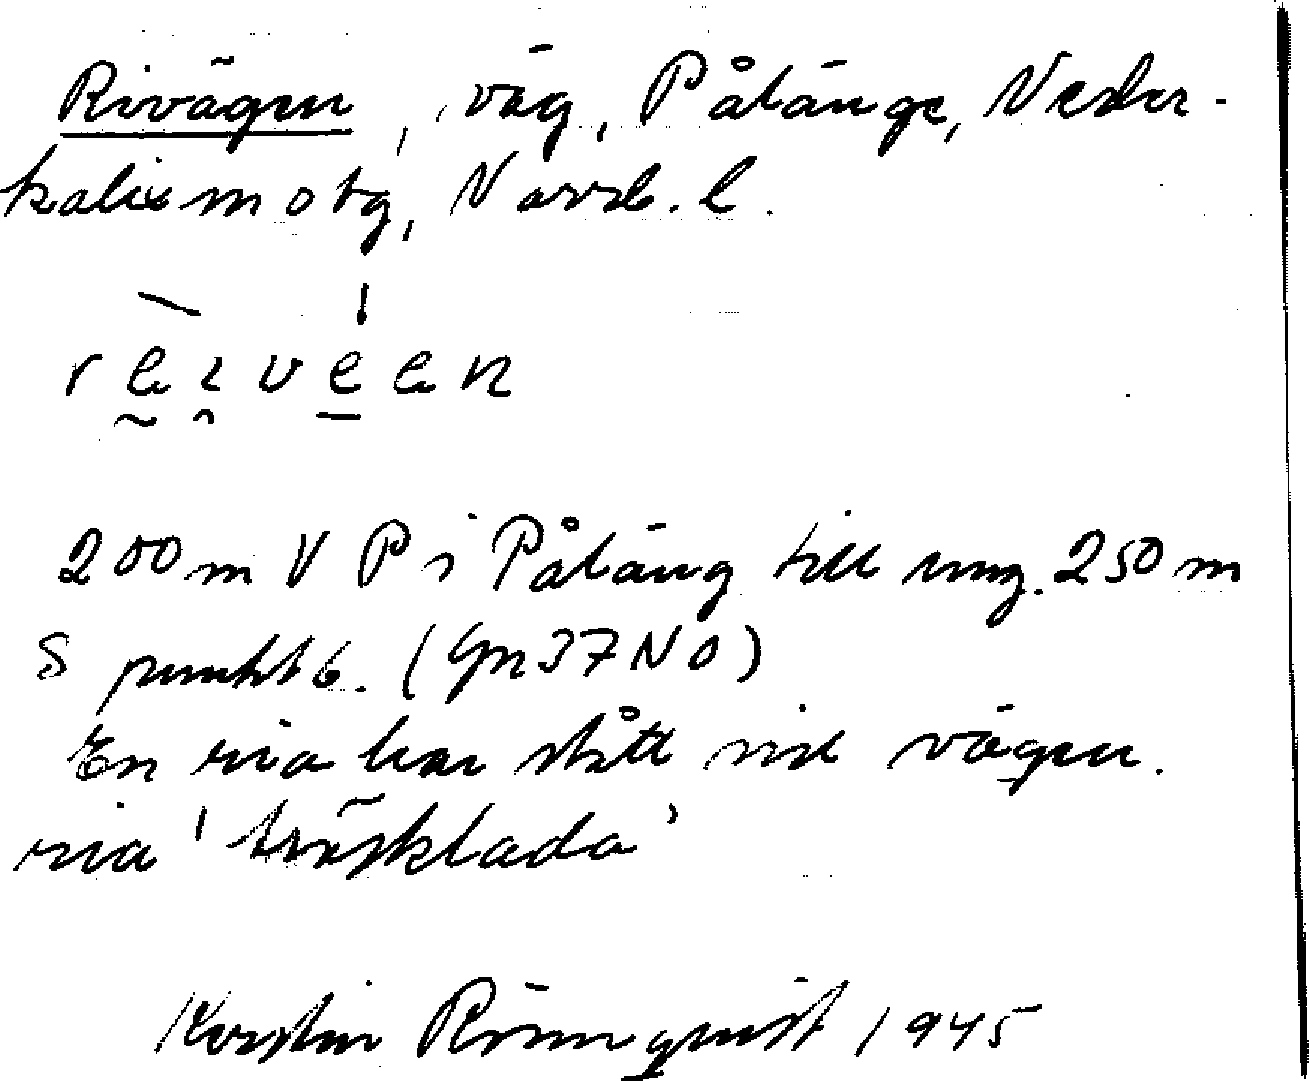 Rivägen, väg, Pålänge, Neder-
kalix m o tg, Norrb. l.
200 m V P i Påläng till ung. 250 m
S punkt 6. (Gn 37 NO)
En ria har stått vid vägen.
ria 'trösklada'
Kerstin Rönnquist 1945